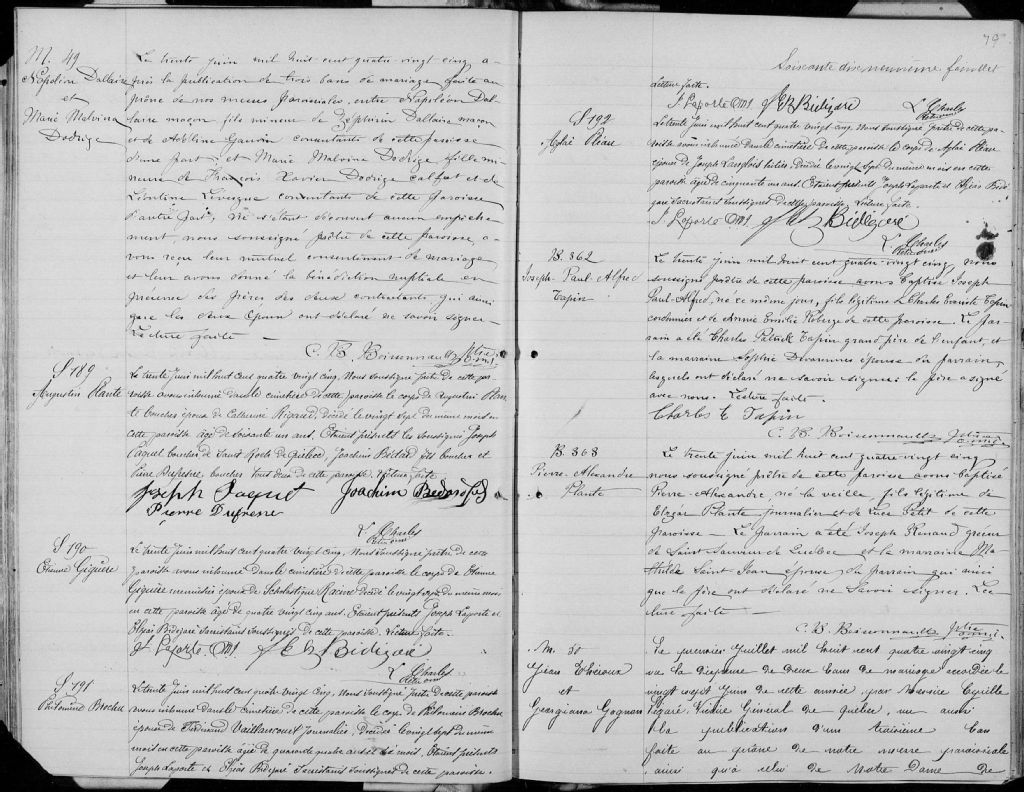 M. 49
Napoléon Dallaire
et
Marie Malvina
Dodrige
Le trente juin mil huit cent quatre-vingt cinq, a-
près la publication de trois bans de mariage faite au
prône de nos messes paroissiales, entre Napoléon Dal-
laire maçon fils mineur de Zéphirin Dallaire maçon
et de Adéline Gauvin consentants de cette paroisse
d'une part; et Marie Malvina Dodrige fille mi-
neure de François Xavier Dodrige calfat et de
Léontine Lévesque consentants de cette paroisse
d'autre part; Ne s'étant découvert aucun empêche-
ment, nous soussigné prêtre de cette paroisse, a-
vons reçu leur mutuel consentement de mariage
et leur avons donné la bénédiction nuptiale en
présence des pères des deux contractants, qui ainsi
que les deux époux ont déclaré ne savoir signer.
Lecture faite
C. B. Boissonnault Ptre O.m.i.
S 189
Augustin Plante
Le trente Juin mil huit cent quatre vingt cinq, Nous soussigné prêtre de cette pa-
roisse avons inhumé dans le cimetière de cette paroisse le corps de Augustin Plan-
te boucher époux de Catherine Rigaud, décédé le vingt sept du même mois en
cette paroisse âgé de soixante un ans. Etaient présents les soussignés Joseph
Paquet boucher de Saint Roch de Québec, Joachim Bédard fils boucher et
Pierre Dufresne, boucher tous deux de cette paroisse. Lecture faite.
Joseph Paquet Joachim Bedard fils
Pierre Dufresne
L. Charles
Ptre omi
S 190
Etienne Giguère
Le trente Juin mil huit cent quatre vingt cinq, Nous soussigné prêtre de cette
paroisse avons inhumé dans le cimetière de cette paroisse le corps de Etienne
Giguère menuisier époux de Scholastique Racine décédé le vingt sept du même mois
en cette paroisse âgé de quatre vingt cinq ans. Etaient présents Joseph Laporte et
Elzéar Bédégaré Sacristains soussignés de cette paroisse. Lecture faite.
J. Laporte OMI J E B Bidégaré
L. Charles
Ptre omi
S 191
Philomène Brochu
Le trente Juin mil huit cent quatre vingt cinq, Nous soussigné prêtre de cette paroisse
avons inhumé dans le cimetière de cette paroisse le corps de Philomène Brochu
épouse de Ferdinand Vaillancourt journalier, décédée le vingt sept du même
mois en cette paroisse âgée de quarante quatre ans et mois, Etaient présents
Joseph Laporte et Elzéar Bédégaré Sacristains soussignés de cette paroisse.
79
Soixante dix neuvième feuillet
Lecture faite.
J. Laporte OMI J E B Bidégaré
L. Charles
Ptre omi
S 192
Aglaé Pleau
Le trente Juin mil huit cent quatre vingt cinq. Nous soussigné prêtre de cette pa-
roisse avons inhumé dans le cimetière de cette paroisse le corps de Aglaé Pleau
épouse de Joseph Langlois décédée le vingt sept du même mois en cette
paroisse âgée de cinquante un ans. Etaient présents, Joseph Laporte et Elzéar Bédé-
garé Sacristains soussignés de cette paroisse. Lecture faite.
J. Laporte OMI J E B Bidégaré
L. Charles
Ptre omi
B. 362
Joseph-Paul-Alfred
Tapin
Le trente juin mil huit cent quatre-vingt cinq nous
soussigné prêtre de cette paroisse avons baptisé Joseph
Paul-Alfred, né ce même jour, fils légitime de Charles Evariste Tapin
cordonnier et de Annie Emilie Roberge de cette paroisse. Le par-
rain a été Charles Patrick Tapin grand père de l'enfant, et
la marraine Sophie épouse du parrain,
lesquels ont déclaré ne savoir signer; le père a signé
avec nous. Lecture faite.
Charles E Tapin
C. B. Boissonnault Ptre O.m.i.
B. 363
Pierre-Alexandre
Plante
Le trente juin mil huit cent quatre vingt cinq
nous soussigné prêtre de cette paroisse avons baptisé
Pierre-Alexandre, né la veille, fils légitime de
Elzéar Plante journalier et de Luce Petit de cette
paroisse — Le parrain a été Joseph Renaud
de Saint Sauveur de Québec et la marraine Ma-
thilde Saint Jean épouse du parrain qui ainsi
que le père ont déclaré ne savoir signer. Lec-
ture faite
C. B. Boissonnault Ptre O.m.i.
M. 50
Jean Thérioux
et
Georgiana Gognon
Le premier juillet mil huit cent quatre vingt cinq
vu la dispense de deux bans de mariage accordée le
vingt sept juin de cette année par Messire Cyrille
Légaré Vicaire Général de Québec, vu aussi
la publication d'un troisième ban
faite au prône de notre messe paroissiale
ainsi qu'à celui de Notre Dame de